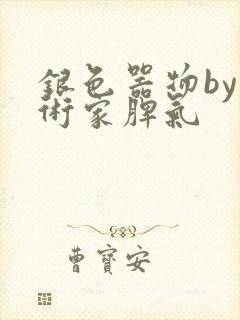 銀色器物by
術家脾氣
曹寶安